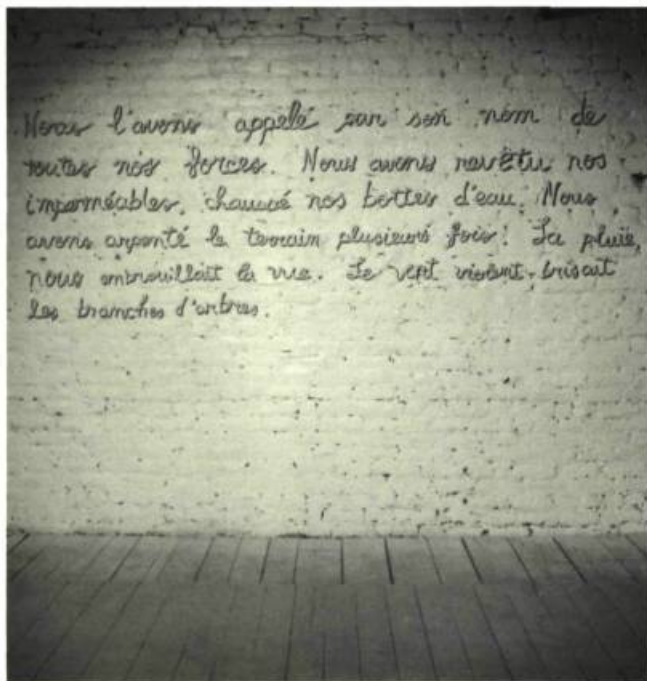 Nous l'avons appelé par son nom de
toutes nos forces. Nous avons revêtu nos
imperméables, chaussé nos bottes d'eau. Nous
avons arpenté le terrain plusieurs fois! La pluie,
nous embrouillait la vue. Le vent violent, brisait
les branches d'arbres.